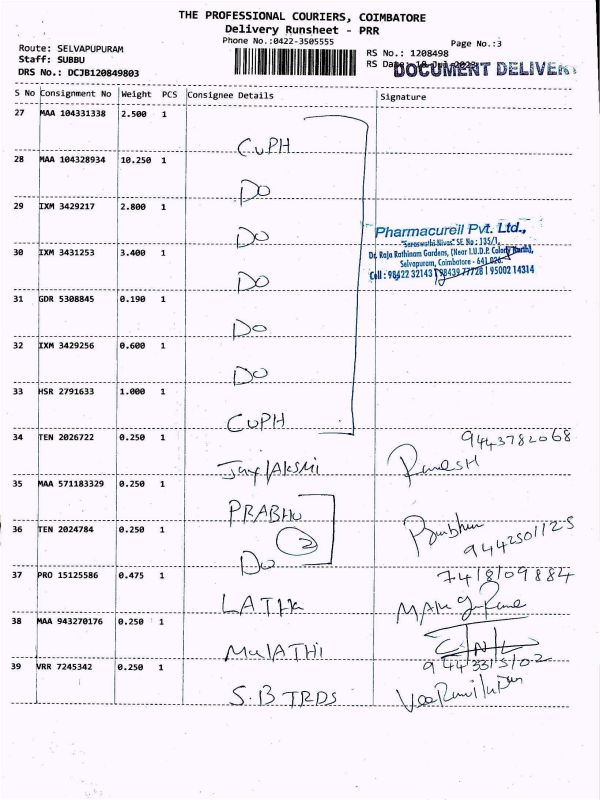 THE PROFESSIONAL COURIERS, COIMBATORE
Delivery Runsheet - PRR
Phone No.:0422-3505555
Page No.:3
Route: SELVAPUPURAM
Staff: SUBBU
DRS No.: DCJB120849803
RS No.: 1208498
RS Date:
DOCUMENT DELIVERY
S No Consignment No Weight PCS Consignee Details Signature
27 MAA 104331338 2.500 1
CUPH
28 MAA 104328934 10.250 1
DO
29 IXM 3429217 2.800 1
DO
Pharmacureil Pvt. Ltd.,
"Saraswathi Nivas" SF. No : 135/1,
Dr. Raja Rathinam Gardens, (Near I.U.D.P. Colony North),
Selvapuram, Coimbatore - 641 026.
Cell : 98422 32143 | 98439 77728 | 95002 14314
30 IXM 3431253 3.400 1
DO
31 GDR 5308845 0.190 1
DO
32 IXM 3429256 0.600 1
DO
33 HSR 2791633 1.000 1
CUPH
34 TEN 2026722 0.250 1
9443782068
Jaylakshmi Ramesh
35 MAA 571183329 0.250 1
PRABHU
36 TEN 2024784 0.250 1
2
DO
9442501125
37 PRO 15125586 0.475 1
7418109884
LATHA
38 MAA 943270176 0.250 1
MalATHI
39 VRR 7245342 0.250 1
9443315102
S.B TRDS